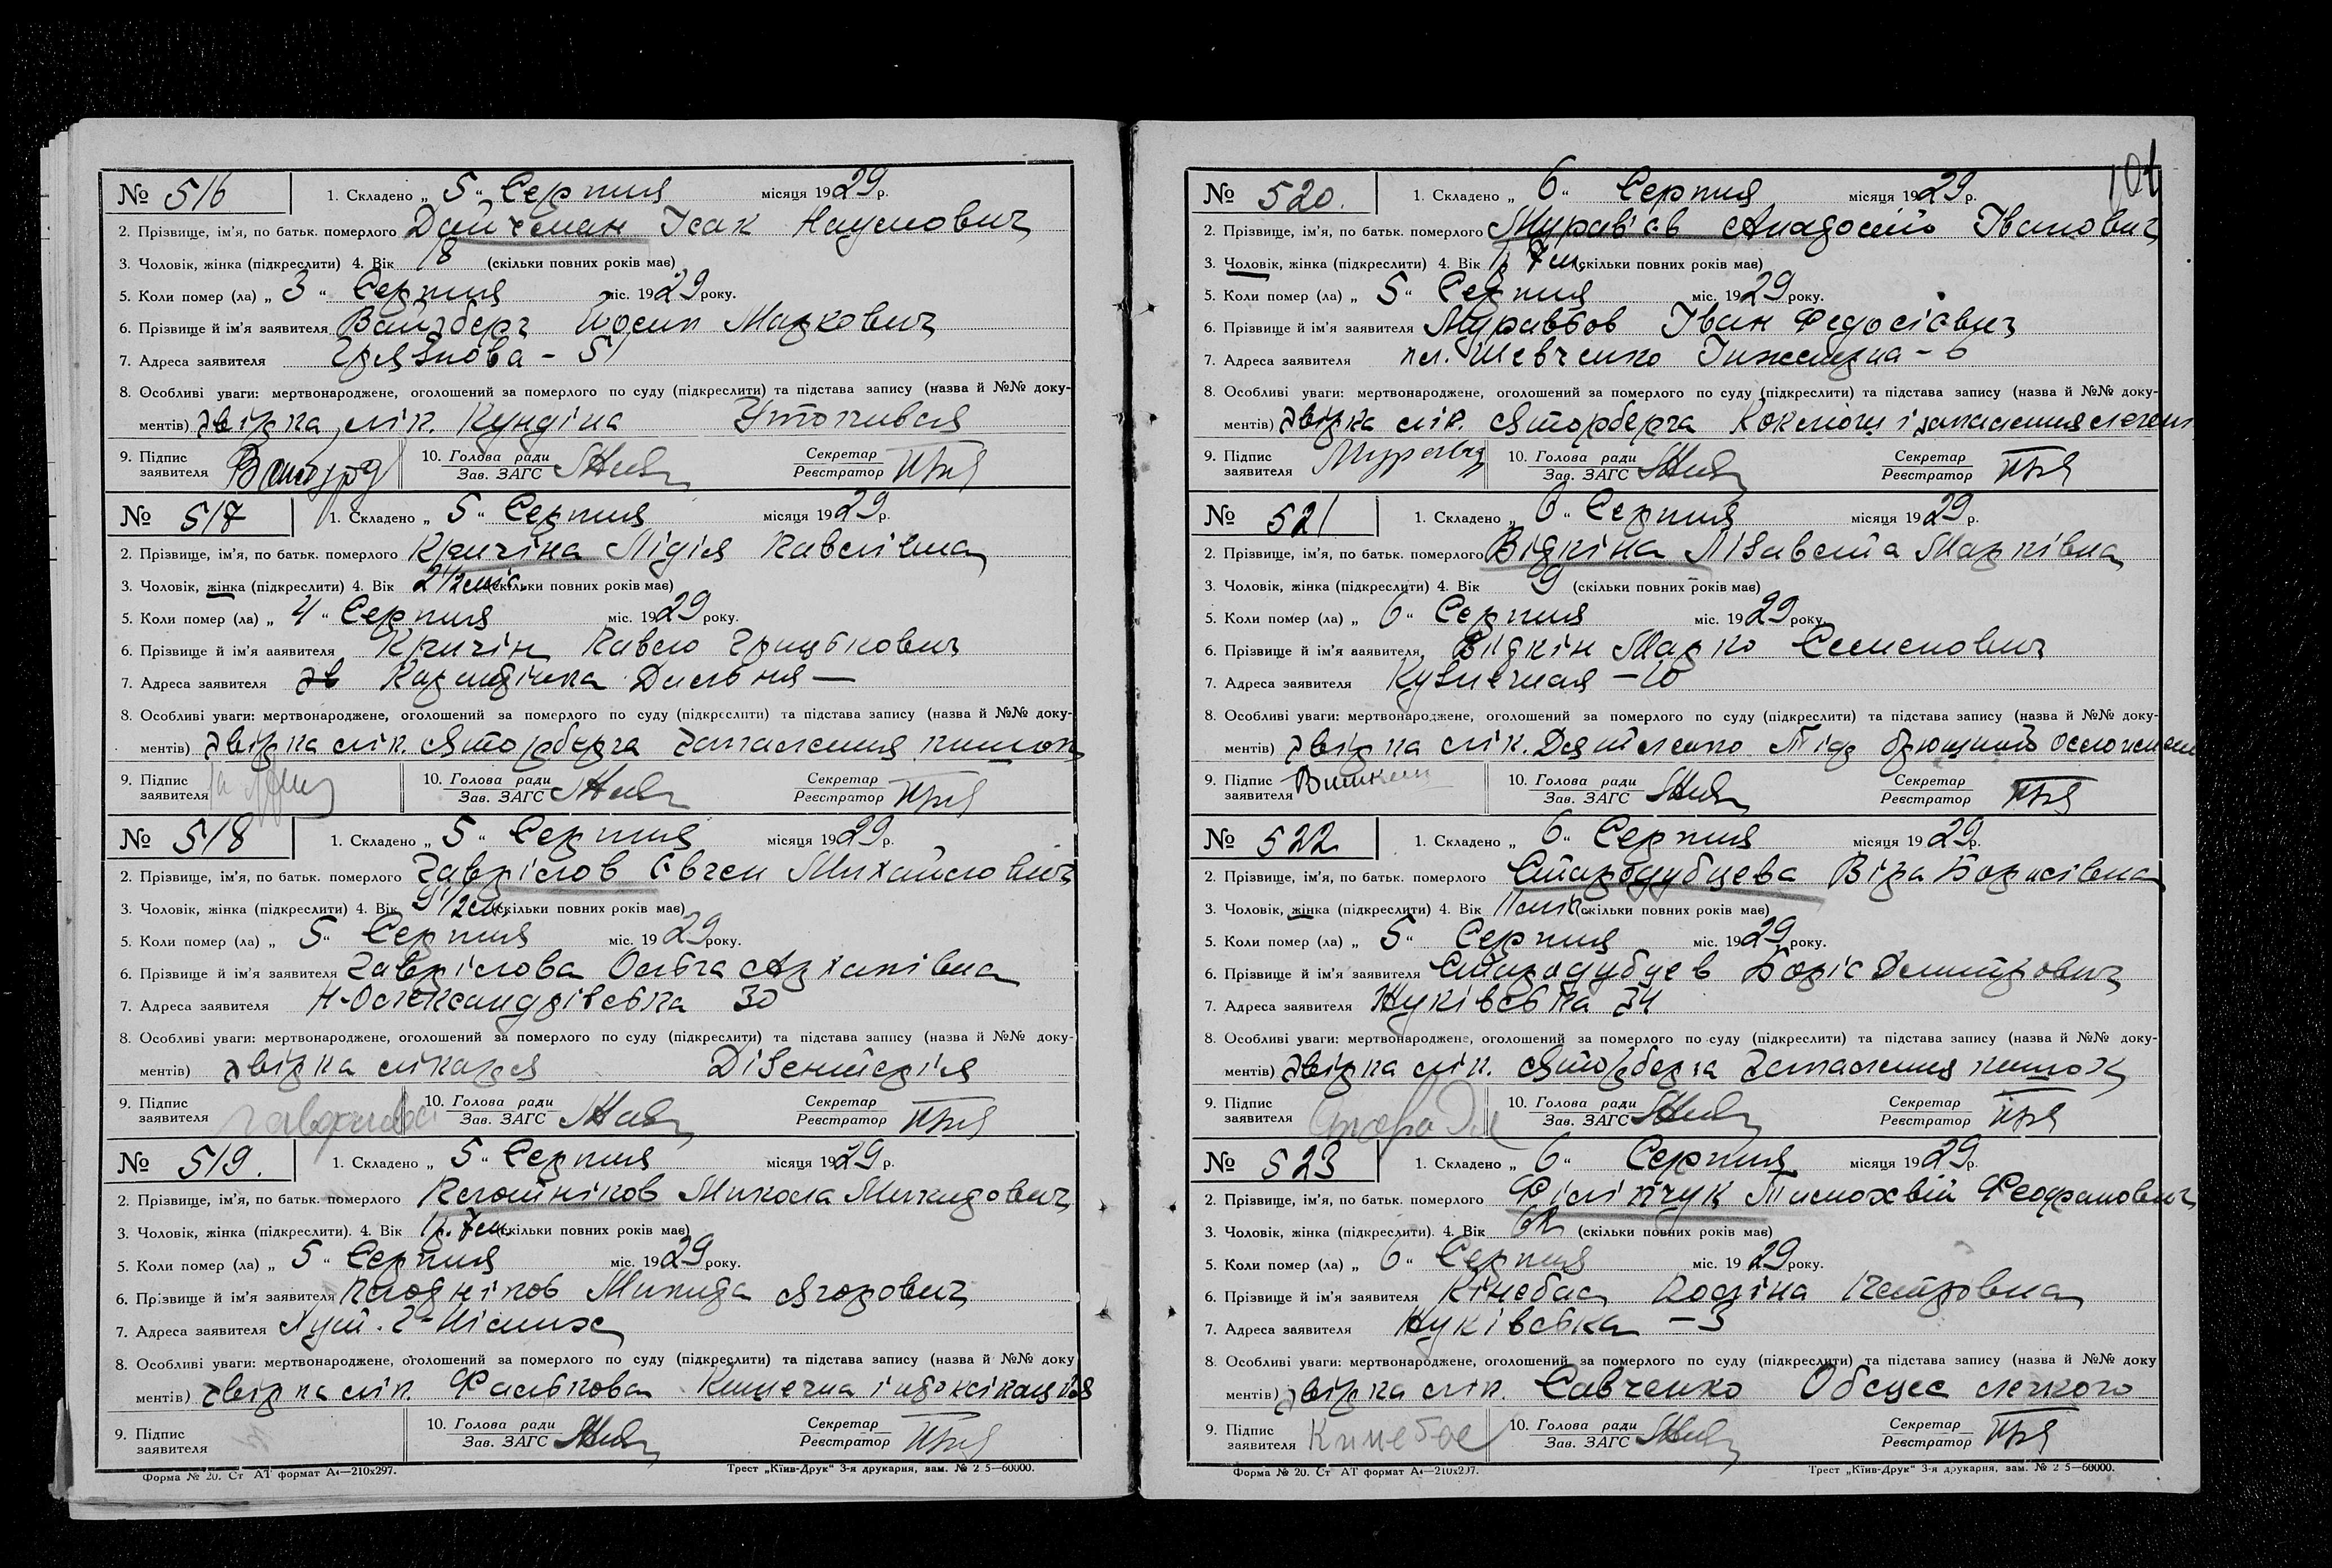 № 516 1. Складено „ 5 “ Серпня місяця 1929 р.
2. Прізвище, ім’я, по батьк. померлого Дайчман Ісак Наумович
3. Чоловік, жінка (підкреслити) 4. Вік 18 (скільки повних років має)
5. Коли помер (ла) „ 3 “ Серпня міс. 1929 року.
6. Прізвище й ім’я заявителя Вайзберг Йосип Маркович
7. Адреса заявителя Грязнова – 51
8. Особливі уваги: мертвонароджене, оголошений за померлого по суду (підкреслити) та підстава запису (назва й №№ доку-
ментів) двідка лік. Кундіна Утопився
9. Підпис заявителя 10. Голова ради Зав. ЗАГС Секретар Реєстратор
№ 517 1. Складено „ 5 “ Серпня місяця 1929 р.
2. Прізвище, ім’я, по батьк. померлого Кричіна Лідія Павлівна
3. Чоловік, жінка (підкреслити) 4. Вік 2 1/2 міс (скільки повних років має)
5. Коли помер (ла) „ 4 “ Серпня міс. 1929 року.
6. Прізвище й ім’я заявителя Кричін Павло Грицькович
7. Адреса заявителя дв
8. Особливі уваги: мертвонароджене, оголошений за померлого по суду (підкреслити) та підстава запису (назва й №№ доку-
ментів) двідка лік. Яторберга Запалення кишок
9. Підпис заявителя 10. Голова ради Зав. ЗАГС Секретар Реєстратор
№ 518 1. Складено „ 5 “ Серпня місяця 1929 р.
2. Прізвище, ім’я, по батьк. померлого Гаврілов Євген Михайлович
3. Чоловік, жінка (підкреслити) 4. Вік 9 1/2 м. (скільки повних років має)
5. Коли помер (ла) „ 5 “ Серпня міс. 1929 року.
6. Прізвище й ім’я заявителя Гаврілова Ольга Архипівна
7. Адреса заявителя Н-Олександрівська 30
8. Особливі уваги: мертвонароджене, оголошений за померлого по суду (підкреслити) та підстава запису (назва й №№ доку-
ментів) двідка лікаря Дізентерія
9. Підпис заявителя 10. Голова ради Зав. ЗАГС Секретар Реєстратор
№ 519. 1. Складено „ 5 “ Серпня місяця 1929 р.
2. Прізвище, ім’я, по батьк. померлого Микола Микидович
3. Чоловік, жінка (підкреслити). 4. Вік 1 р. 7 м. (скільки повних років має)
5. Коли помер (ла) „ 5 “ Серпня міс. 1929 року.
6. Прізвище й ім’я заявителя Микида Ягорович
7. Адреса заявителя
8. Особливі уваги: мертвонароджене, оголошений за померлого по суду (підкреслити) та підстава запису (назва й №№ доку
ментів) двідка лік. Фалькова Кишечна інтоксікація
9. Підпис заявителя 10. Голова ради Зав. ЗАГС Секретар Реєстратор
Форма № 20. Ст АТ формат А4—210х297. Трест „Київ-Друк“ 3-я друкарня, зам. № 2 5—60000.
104
№ 520. 1. Складено „ 6 “ Серпня місяця 1929 р.
2. Прізвище, ім’я, по батьк. померлого Мурав’єв Іванович
3. Чоловік, жінка (підкреслити) 4. Вік 1 р 7 м. (скільки повних років має)
5. Коли помер (ла) „ 5 “ Серпня міс. 1929 року.
6. Прізвище й ім’я заявителя Муравьов Іван Федосієвич
7. Адреса заявителя пл. Шевченко Інженерна – 6
8. Особливі уваги: мертвонароджене, оголошений за померлого по суду (підкреслити) та підстава запису (назва й №№ доку-
ментів) двідка лік. Яторберга Коклюш і запалення легень
9. Підпис заявителя 10. Голова ради Зав. ЗАГС Секретар Реєстратор
№ 521 1. Складено „ 6 “ Серпня місяця 1929 р.
2. Прізвище, ім’я, по батьк. померлого Відкіна Лізавета Марківна
3. Чоловік, жінка (підкреслити) 4. Вік 9 (скільки повних років має)
5. Коли помер (ла) „ 6 “ Серпня міс. 1929 року.
6. Прізвище й ім’я заявителя Відкін Марко Семенович
7. Адреса заявителя Кузнечная – 10
8. Особливі уваги: мертвонароджене, оголошений за померлого по суду (підкреслити) та підстава запису (назва й №№ доку-
ментів) двідка лік. Дятленко Тіф брюшний
9. Підпис заявителя 10. Голова ради Зав. ЗАГС Секретар Реєстратор
№ 522 1. Складено „ 6 “ Серпня місяця 1929 р.
2. Прізвище, ім’я, по батьк. померлого Стародубцева Віра Борисівна
3. Чоловік, жінка (підкреслити) 4. Вік 11 міс (скільки повних років має)
5. Коли помер (ла) „ 5 “ Серпня міс. 1929 року.
6. Прізвище й ім’я заявителя Стародубцев Боріс Дмитрович
7. Адреса заявителя Жуківська 34
8. Особливі уваги: мертвонароджене, оголошений за померлого по суду (підкреслити) та підстава запису (назва й №№ доку-
ментів) двідка лік. Яторберга Запалення кишок
9. Підпис заявителя 10. Голова ради Зав. ЗАГС Секретар Реєстратор
№ 523 1. Складено „ 6 “ Серпня місяця 1929 р.
2. Прізвище, ім’я, по батьк. померлого Філіпчук Тимохвій Феофанович
3. Чоловік, жінка (підкреслити). 4. Вік (скільки повних років має)
5. Коли помер (ла) „ 6 “ Серпня міс. 1929 року.
6. Прізвище й ім’я заявителя Кінебас Петровна
7. Адреса заявителя Жуківська – 3
8. Особливі уваги: мертвонароджене, оголошений за померлого по суду (підкреслити) та підстава запису (назва й №№ доку
ментів) двідка лік. Савченко Обсцес легкого
9. Підпис заявителя Кинебас 10. Голова ради Зав. ЗАГС Секретар Реєстратор
Форма № 20. Ст АТ формат А4—210х297. Трест „Київ-Друк“ 3-я друкарня, зам. № 2 5—60000.